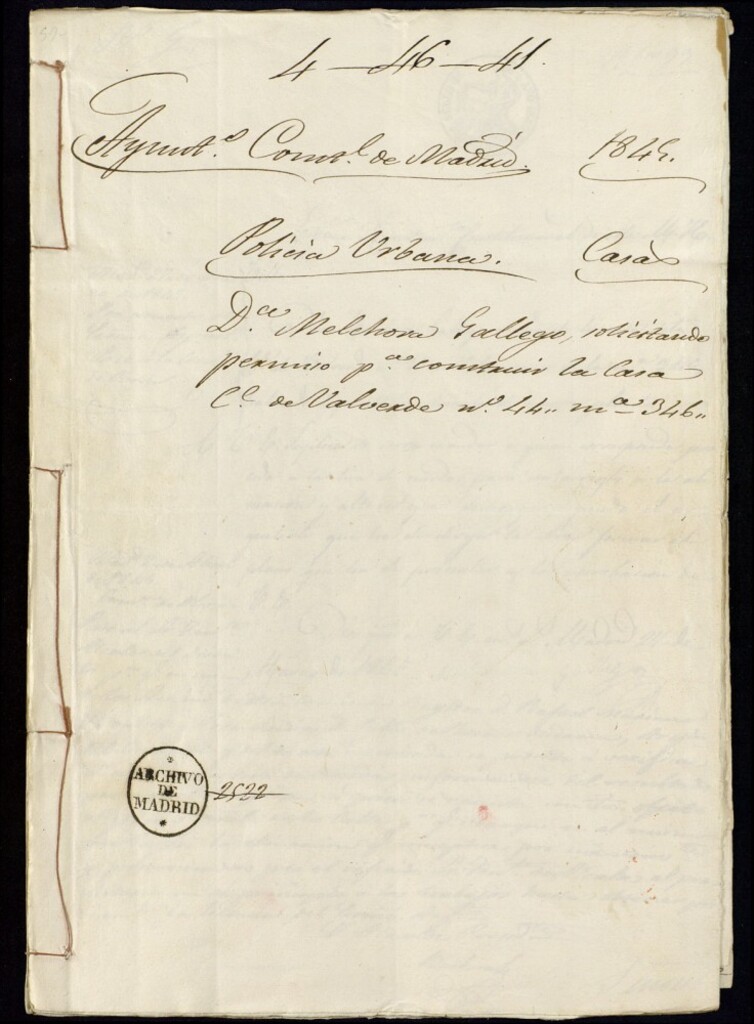 4-46-41.
Aymt.º Const.l de Madrid. 1845.
Policia Urbana. Casas
D.ª Melchora Gallego, solicitando
permiso p.ª construir la Casa
C.e de Valverde n.º 44.. m.ª 346..
ARCHIVO
DE
MADRID
2522